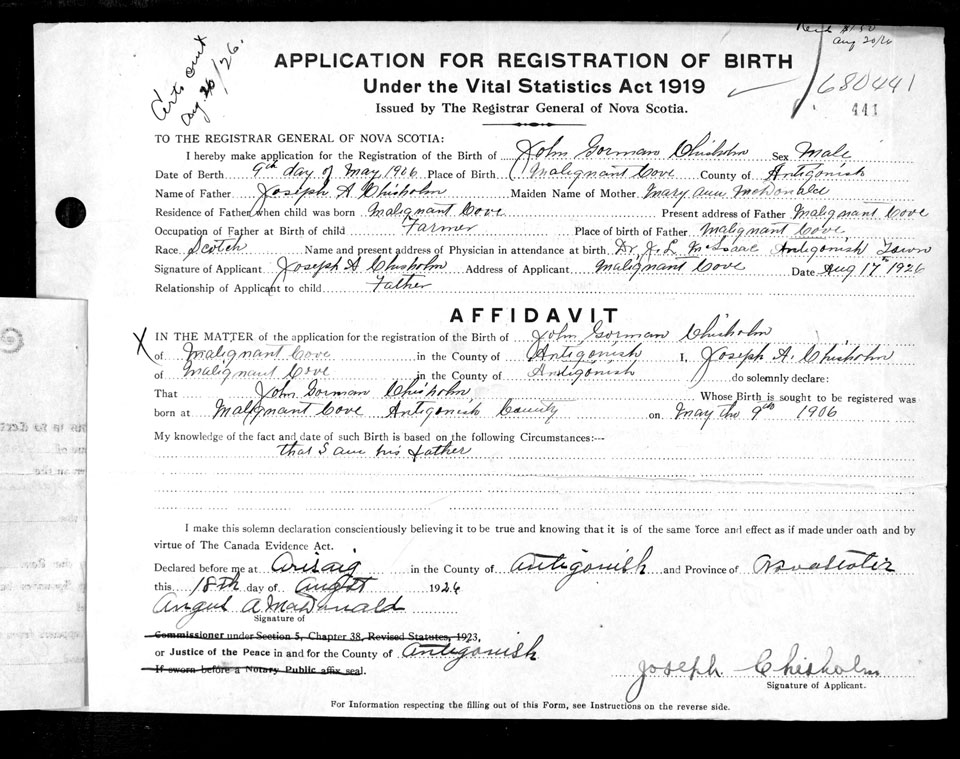 Certs out
Aug 26/26.
Aug 20/26
APPLICATION FOR REGISTRATION OF BIRTH
Under the Vital Statistics Act 1919
680441
Issued by The Registrar General of Nova Scotia.
441
TO THE REGISTRAR GENERAL OF NOVA SCOTIA:
I hereby make application for the Registration of the Birth of John Gorman Chisholm Sex Male
Date of Berth 9th day of May 1906 Place of Birth Malignant Cove County of Antigonish
Name of Father Joseph A Chisholm Maiden Name of Mother Mary Ann McDonald
Residence of Father when child was born Malignant Cove Present address of Father Malignant Cove
Occupation of Father at Birth of child Farmer Place of birth of Father Malignant Cove
Race Scotch Name and present address of Physician in attendance at birth Dr. J. L McIsaac Antigonish Town
Signature of Applicant Joseph A Chisholm Address of Applicant Malignant Cove Date Aug 17th 1926
Relationship of Applicant to child Father
AFFIDAVIT
X IN THE MATTER of the application for the registration of the Birth of John Gorman Chisholm
of Malignant Cove in the County of Antigonish I, Joseph A. Chisholm
of Malignant Cove in the County of Antigonish do solemnly declare:
That John Gorman Chisholm Whose Birth is sought to be registered was
born at Malignant Cove Antigonish County on May the 9th 1906
My knowledge of the fact and date of such Birth is based on the following Circumstances:--
that I am his father
I make this solemn declaration conscientiously believing it to be true and knowing that it is of the same force and effect as if made under oath and by
virtue of The Canada Evidence Act.
Declared before me at Arisaig in the County of Antigonish and Province of Nova Scotia
this 18th day of August 1926
Angus A McDonald
Signature of
Commissioner under Section 5, Chapter 38, Revised Statutes, 1923,
or Justice of the Peace in and for the County of Antigonish
If sworn before a Notary Public affix seal.
Joseph Chisholm
Signature of Applicant.
For Information respecting the filling out of this Form, see Instructions on the reverse side.